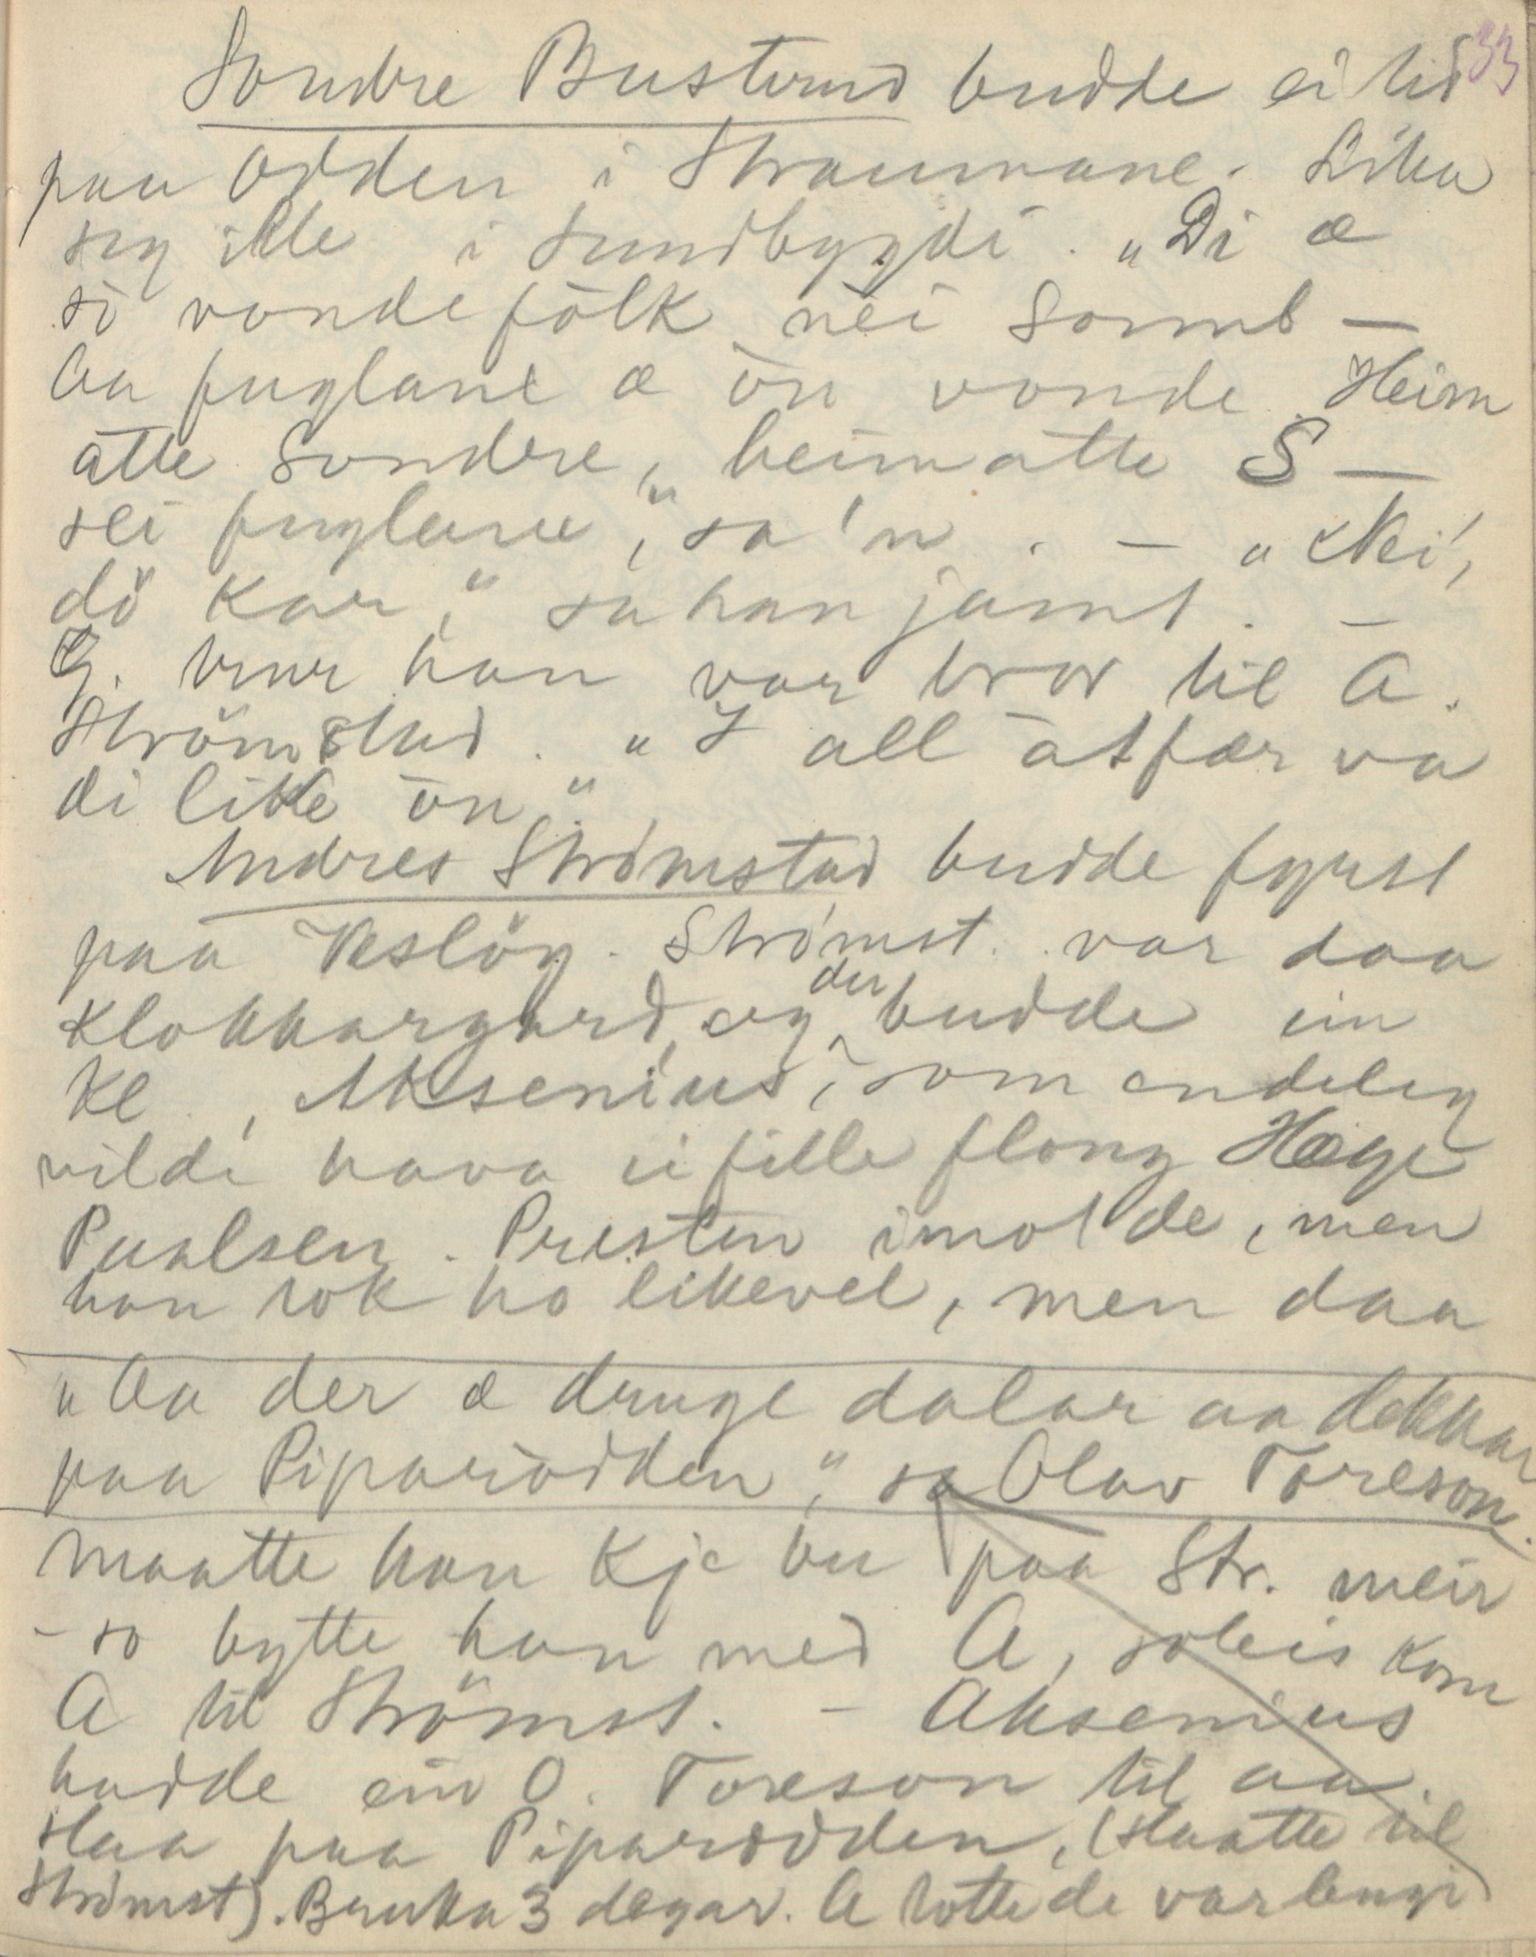 33
Sondre Busterud budde ei tid
paa Odden i Straumane. Lika
seg ille i Sundbygdi. „Di æ
so vonde fólk nei Sonnd —
Aa fuglane æ òn vonde. Heim
atte Sondre, heimatte S —
sei fuglane," sa 'n. — „Nei,
dö kar," sa han jamt. —
G. trur han var bror til A.
Strömstad. „I all åtfær va
di like òn."
Andres Strömstad budde fyrst
paa Vesløy. Strömst. var daa
klokkargard, og der budde ein
kl., Aksenius, som endeleg
vilde hava ei fille flong Hæge
Paalsen. Presten imot de, men
han tok ho likevel, men daa
„Aa der æ druge dalar aa dekkar
paa Piparodden," sa Olav Toreson.
maatte han kje bu paa Str. meir
- so bytte han med A, soleis kom
A til Strömst. - Aksenius
hadde ein O. Toreson til aa
slaa paa Piparodden, (slaatte til
Strömst). Bruka 3 dagar. A totte de var lengi